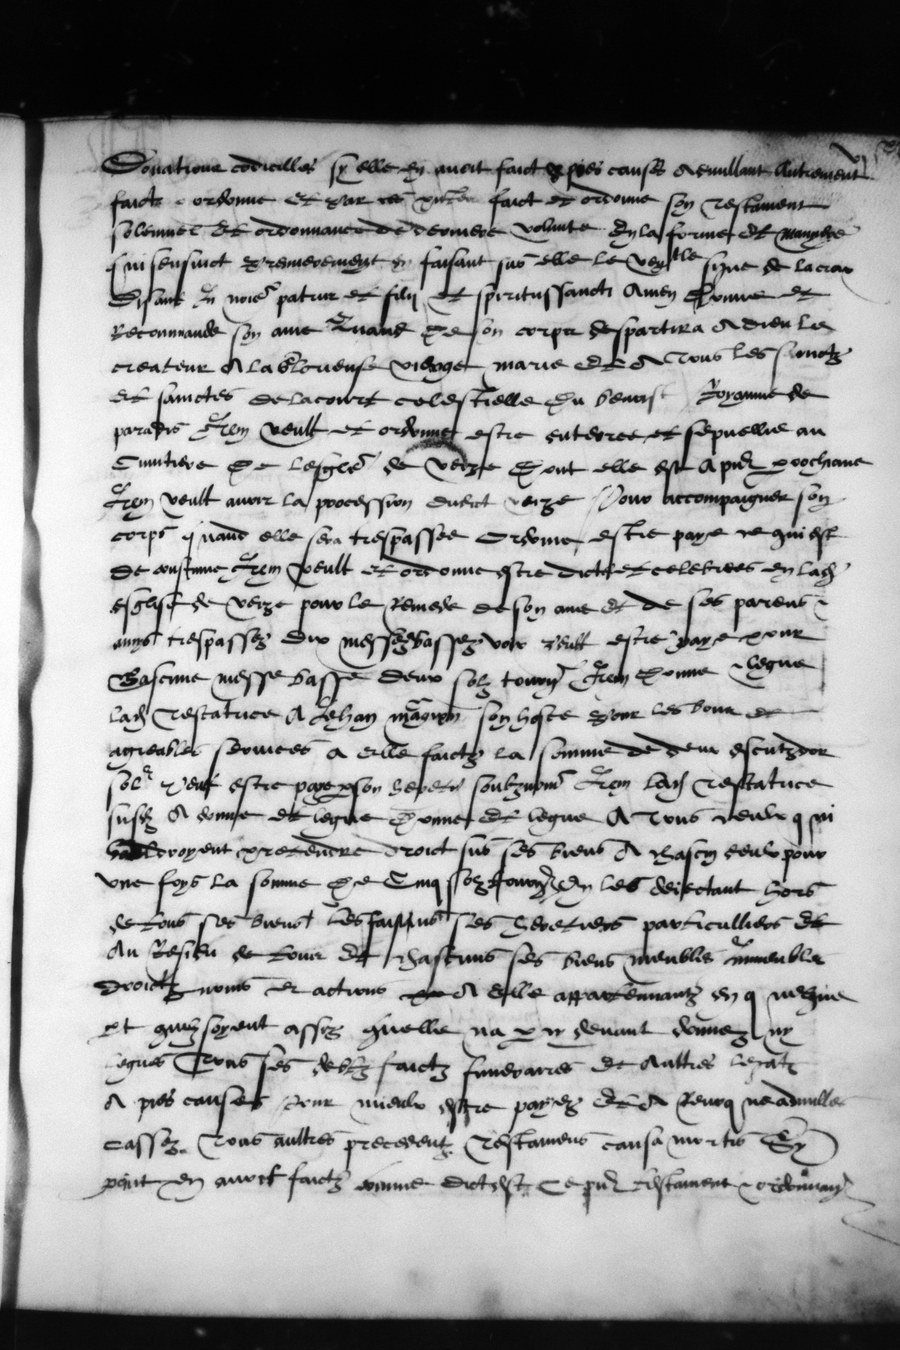 Donations codicilles sy elle en avoit faict & pies causes Adnullant Autrement
faictz & ordonne Et par ces faict et ordonne son testament
solempnel Et ordonnance de derniere volunte En la forme et maniere
qui sensuict premierement en faisant sus elle le venerable signe de la croix
Disant In nomine patris et filii et spiritussancti Amen Donne et
Recommande son ame Quand de son corps despartira A dieu le
createur A la glorieuse vierge marie Et A tous les sainctz
et sainctes de la court celestielle du benoist Royaume de
paradis Item veult et ordonne estre enterree et sepvellie au
Cimitiere de lesglise de verze dont elle est A pnt parochiane
Item veult avoir la procession dudict verze Pour accompaigner son
corps quand elle sera trespassee Ordonne estre paye ce qui est
de coustume Item veult et ordonne estre dictes et celebrees en lad
esglise de verze pour le Remede de son ame et de ses parens &
amys trespassez dix messes basses veult estre paye pour
chascune messe basse deux solz tourns Item donne & legue
lad testatrice A Jehan son hoste pour les bons et
agreables services A elle faictz la somme de deux escutz dor
sol veult estre paye p son heretier soubznome Item lad testatrice
susd A donne et legue donne et legue A tous ceulx qui
vouldroyent pretendre droict sus ses biens A chascun deulx pour
une foys la somme de Cinq solz tourns En les deiectant hors
de tous ses biens Les faisant ses heretiers particulliers Et
Au Residu de tous et chascuns ses biens meubles Immeubles
droictz noms et actions A elle appartennantz en q
et quilz soyent assis quelle na p cy devant donnez ny
legues Tous ses debtz faictz funeraires et Aultres legatz
A pies causes Veult estre payes Et A Revoq ne adnulles
cassez Tous aultres precedentz testamens causa mortis Sy
point en avoit faictz comme dict est Ce pnt testament & ordonnance